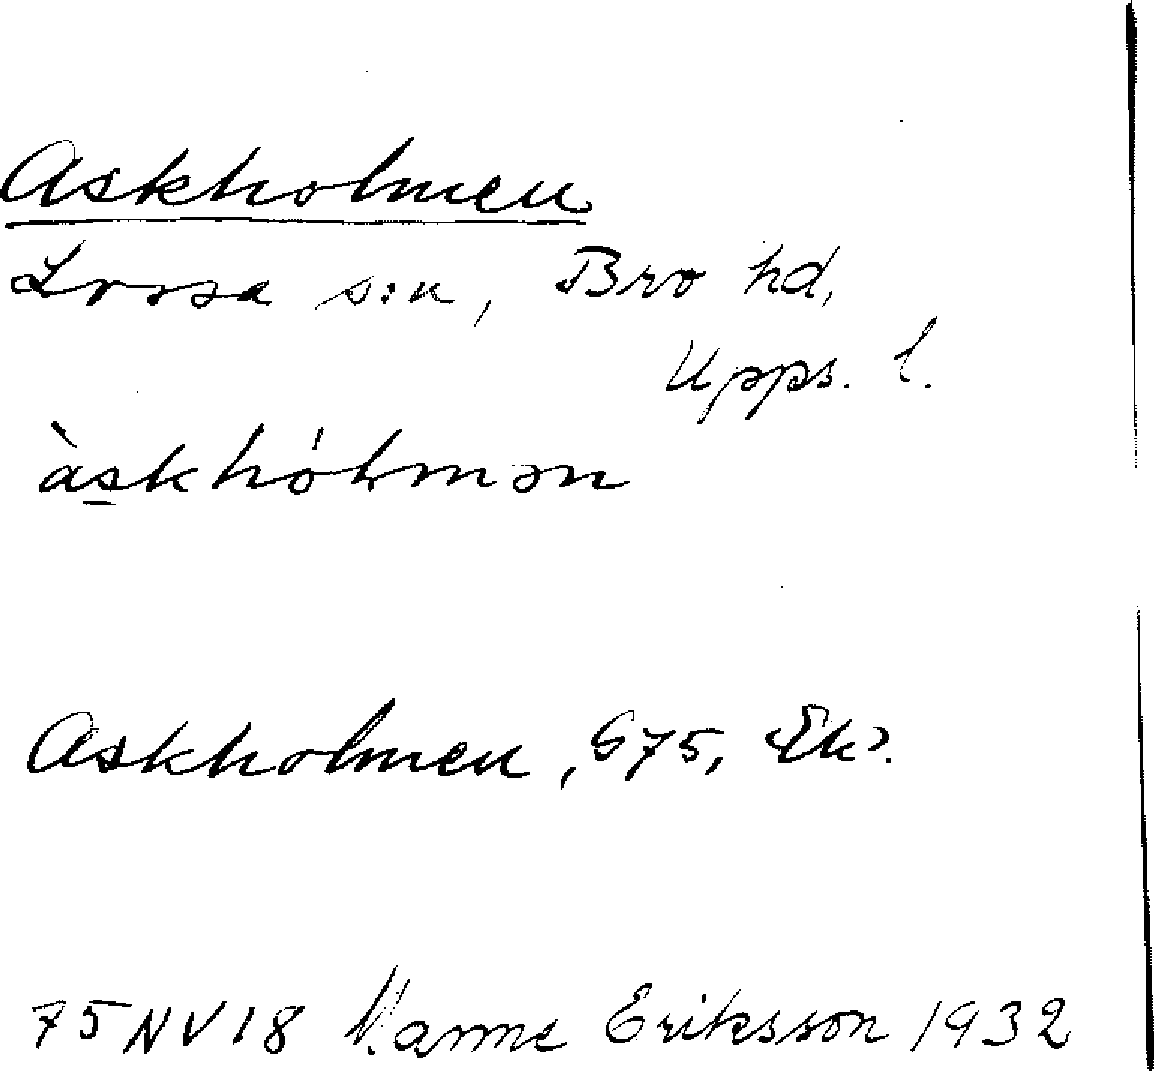 Askholmen
Lossa s:n, Bro hd,
Upps. l.
àskhólmən
Askholmen, G75, Ek².
75NV18 Manne Eriksson 1932